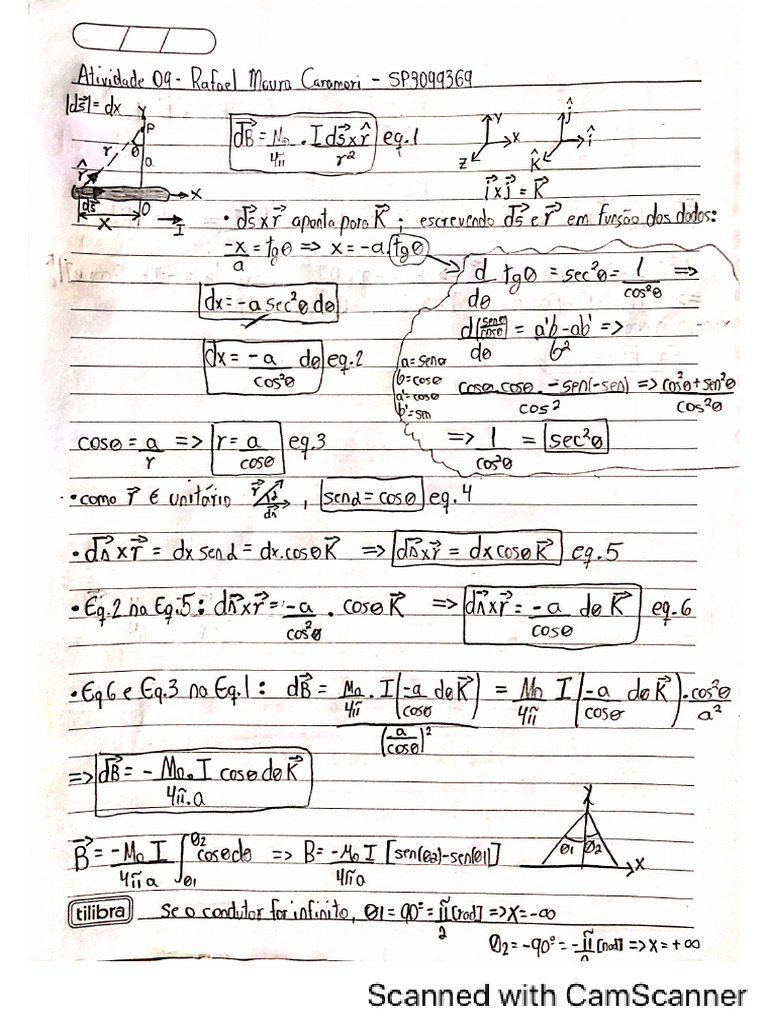 Atividade 09 - Rafael Moura Caramori - SP3099369
|ds⃗| = dx
Y
P
θ
r
a
r̂
ds⃗
X
O
X
I
dB⃗ = Mo/4π . I ds⃗ x r̂/r² eq.1
Y
X
Z
ĵ
î
K̂
i⃗ x j⃗ = K⃗
• ds⃗ x r⃗ aponta para K⃗ ; escrevendo ds⃗ e r⃗ em função dos dados:
-x/a = tgθ => x = -a.tgθ
d/dθ tgθ = sec²θ = 1/cos²θ =>
dx = -a sec²θ dθ
d(senθ/cosθ)/dθ = a'b-ab'/b² =>
dx = -a/cos²θ dθ eq.2
a = senθ
b = cosθ
a' = cosθ
b' = sen
cosθ.cosθ - sen(-sen)/cos² => cos²θ+sen²θ/cos²θ
cosθ = a/r => r = a/cosθ eq.3
=> 1/cos²θ = sec²θ
• como r⃗ é unitário r⃗ α ds⃗ , senα = cosθ eq.4
• ds⃗ x r⃗ = dx senα = dx.cosθ K⃗ => ds⃗ x r⃗ = dx cosθ K⃗ eq.5
• Eq.2 na Eq.5: ds⃗ x r⃗ = -a/cos²θ . cosθ K⃗ => ds⃗ x r⃗ = -a/cosθ dθ K⃗ eq.6
• Eq6 e Eq.3 na Eq.1: dB⃗ = Mo/4π . I (-a/cosθ dθ K⃗)/(a/cosθ)² = Mo/4π I (-a/cosθ dθ K⃗) . cos²θ/a²
=> dB⃗ = - Mo.I/4π.a cosθ dθ K⃗
Y
θ1 θ2
X
B⃗ = -Mo I/4πa ∫θ1^θ2 cosθdθ => B = -Mo I/4πa [sen(θ2)-sen(θ1)]
tilibra
Se o condutor for infinito, θ1 = 90° = π/2 [rad] => X = -∞
θ2 = -90° = -π/2 [rad] => x = +∞
Scanned with CamScanner